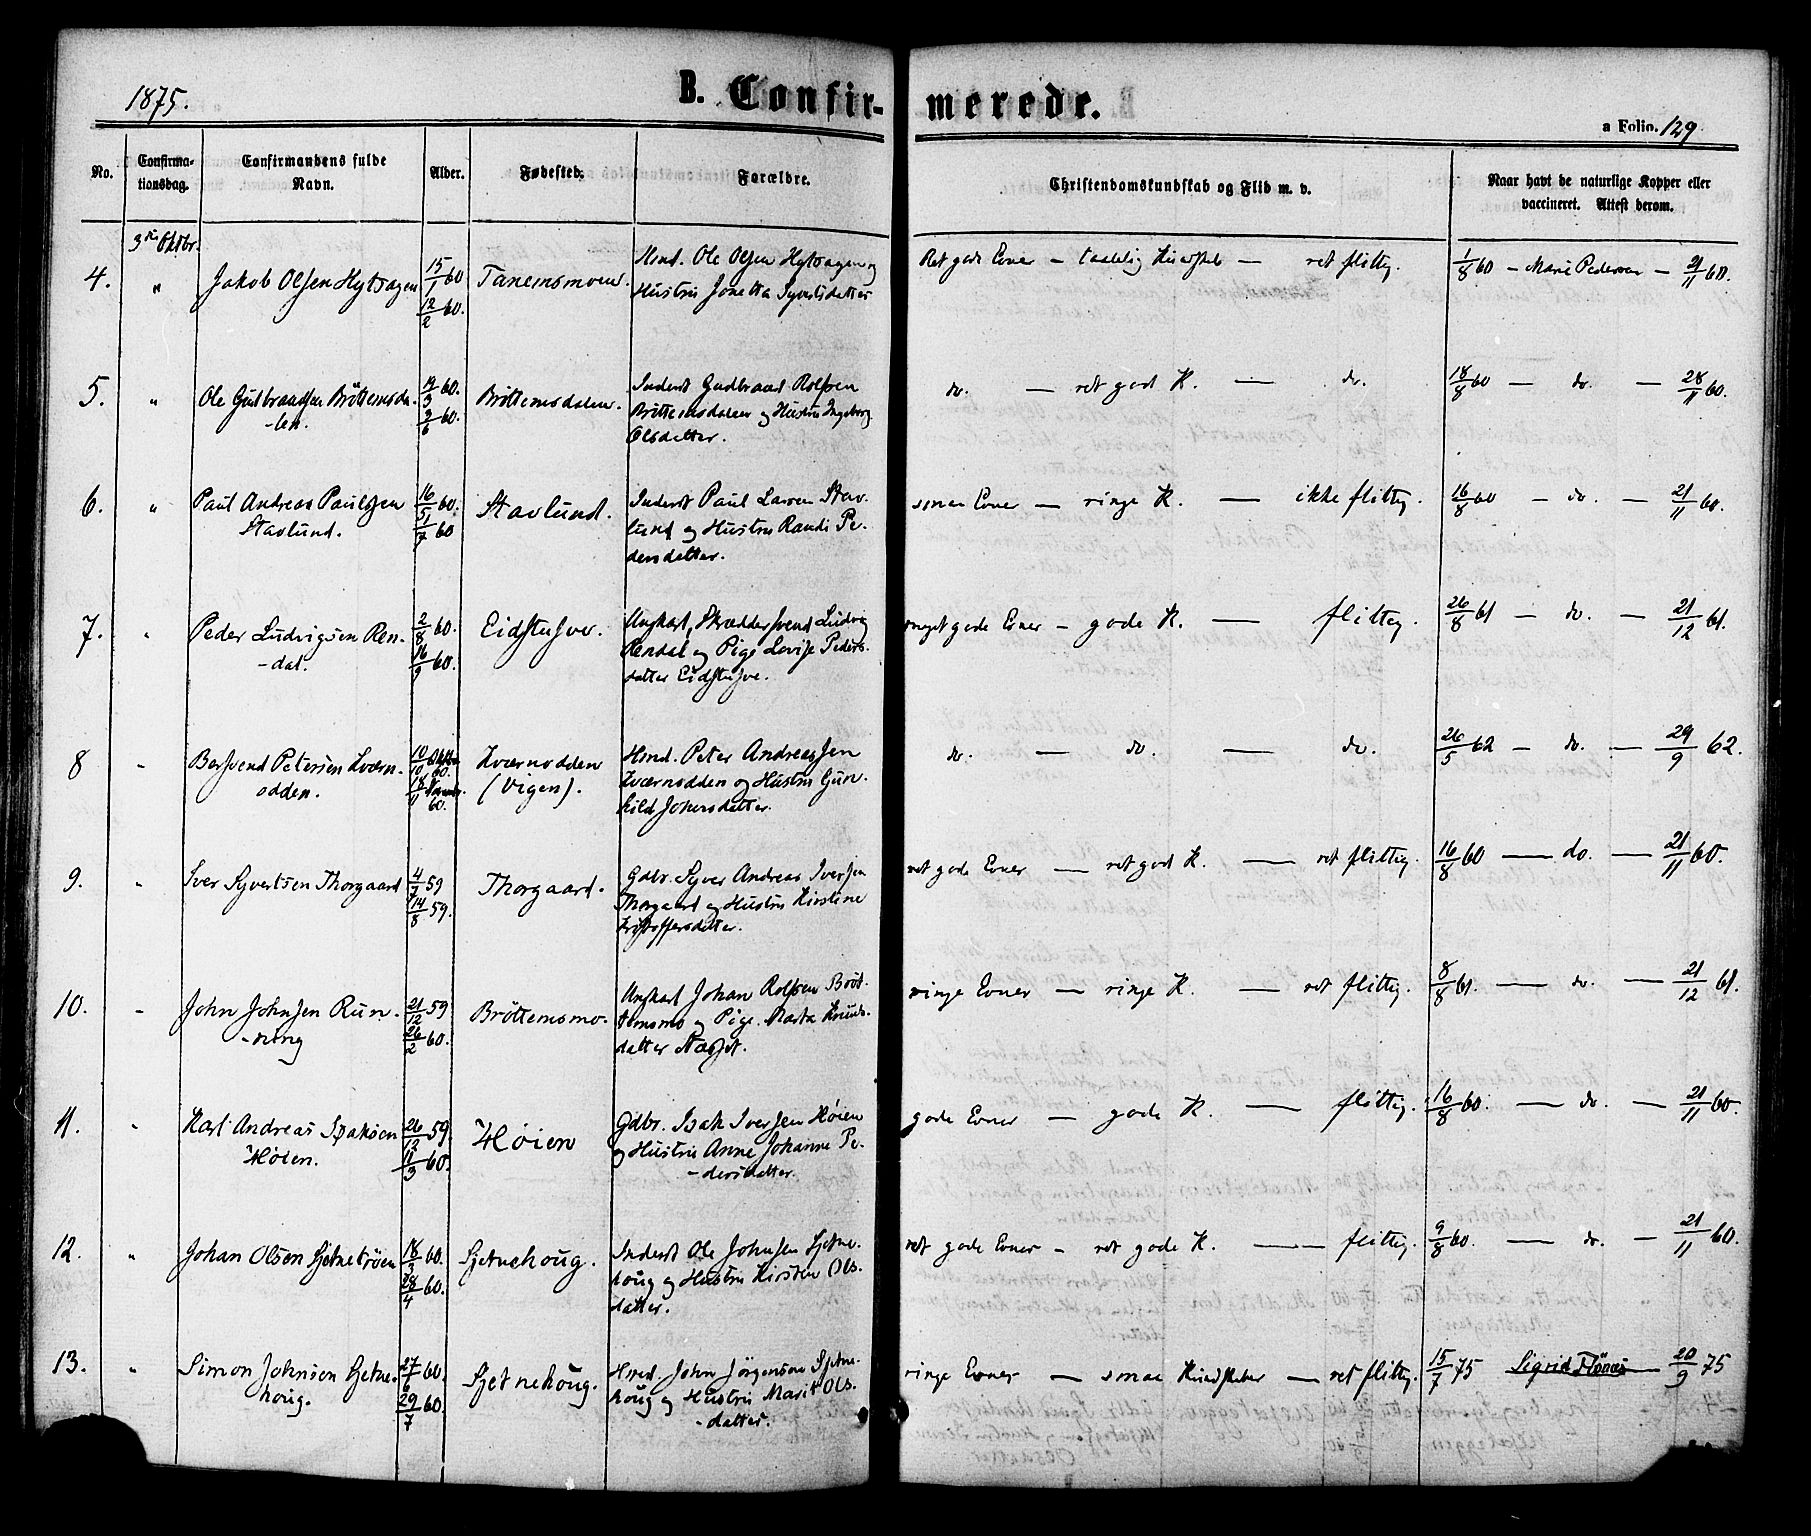 1875.
B. Confir-
merede.
a Folio. 129
No.
Confirma-
tionsdag.
Confirmandens fulde
Navn.
Alder.
Fødested.
Forældre.
Christendomskundskab og Flid m. v.
Naar havt de naturlige Kopper eller
vaccineret. Attest derom.
3die Oktbr.
4. " Jakob Olsen Hytsagen 15/1 60 12/2 60. Tanemsmoen.
Hmd. Ole Olsen Hytsagen og
Hustru Jonetta Syvertsdatter
Ret gode Evner — taalelig Kundskab — ret flittig. 1/8 60 — Marie Pedersen — 21/11 60.
5. " Ole Gudbrandsen Bröttemsda-
-len. 14/3 60. 3/6 60. Bröttemsdalen.
Inderst Gudbrand Rolfsen
Bröttemsdalen og Hustru Ingeborg
Olsdatter.
do. — ret god K. — do. 18/8 60 — do. — 28/11 60.
6. " Paul Andreas Paulsen
Stavlund. 16/5 60. 1/7 60 Stavlund.
Inderst Paul Larsen Stav-
lund og Hustru Randi Pe-
dersdatter.
smaa Evner — ringe K. — ikke flittig. 16/8 60 — do. — 21/11 60.
7. " Peder Ludvigsen Ren-
-dal. 2/8 60. 16/9 60. Eidstusve.
Ungkarl, Skræddersvend Ludvig
Rendal og Pige Lovise Peders-
datter Eidstusve.
meget gode Evner — gode K. — flittig. 26/8 61 — do. — 21/12 61.
8 " Bersvend Petersen Kværn-
odden. 10/10 60. 18/11 60. Kværnodden
(Vigen).
Hmd. Peter Andreassen
Kværnodden og Hustru Gun-
hild Johnsdatter.
do. — do. — do. 26/5 62 — do. — 29/9 62.
9. " Iver Syvertsen Thorgaard 4/7 59 14/8 59. Thorgaard.
Gdbr. Syver Andreas Iversen
Thorgaard og Hustru Kirstine
Kristoffersdatter.
ret gode Evner — ret god K. — ret flittig. 16/8 60 — do. — 21/11 60.
10. " John Johnsen Run-
-ning 21/12 59 26/2 60. Bröttemsmo.
Ungkarl Johan Rolfsen Bröt-
temsmo og Pige Marta Knuds-
datter
ringe Evner — ringe K. — ret flittig. 8/8 61. — do. — 21/12 61.
11. " Karl Andreas Isaksen
Høien. 26/12 59. 11/3 60. Høien
Gdbr. Isak Iversen Høien
og Hustru Anne Johanne Pe-
-dersdatter.
gode Evner — gode K. — flittig. 16/8 60. — do. — 21/11 60.
12. " Johan Olsen Sjetnetrøen 18/3 60. 28/4 60. Sjetnehoug.
Inderst Ole Johnsen Sjetne-
houg og Hustru Kirsten Ols-
datter.
ret gode Evner — ret gode K. — flittig. 9/8 60. — do. — 21/11 60.
13. " Simon Johnsen Sjetne-
houg. 27/6 60. 29/7 60. Sjetnehoug.
Hmd. John Jörgensen Sjetne-
houg og Hustru Marit Ols-
-datter.
ringe Evner — smaa Kundskaber — ret flittig. 15/7 75 Sigrid Flönæs — 20/9 75